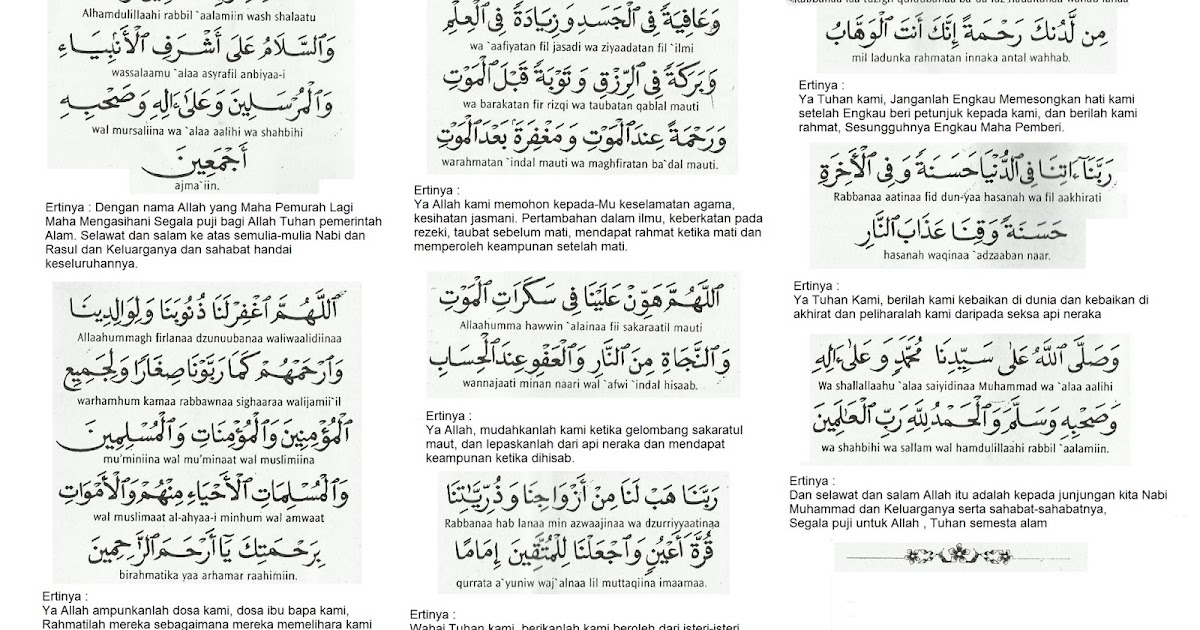 Alhamdulillaahi rabbil `aalamiin wash shalaatu
وَالسَّلَامُ عَلَىٰ أَشْرَفِ الْأَنْبِيَاءِ
wassalaamu `alaa asyrafil anbiyaa-i
وَالْمُرْسَلِينَ وَعَلَىٰ اٰلِهِ وَصَحْبِهِ
wal mursaliina wa `alaa aalihi wa shahbihi
أَجْمَعِينَ
ajma`iin.
Ertinya : Dengan nama Allah yang Maha Pemurah Lagi
Maha Mengasihani Segala puji bagi Allah Tuhan pemerintah
Alam. Selawat dan salam ke atas semulia-mulia Nabi dan
Rasul dan Keluarganya dan sahabat handai
keseluruhannya.
اَللَّهُمَّ اغْفِرْلَنَا ذُنُوبَنَا وَلِوَالِدِينَا
Allaahummagh firlanaa dzunuubanaa waliwaalidiinaa
وَارْحَمْهُمْ كَمَا رَبَّوْنَا صِغَارًا وَلِجَمِيعِ
warhamhum kamaa rabbawnaa sighaaraa walijamii`il
الْمُؤْمِنِينَ وَالْمُؤْمِنَاتِ وَالْمُسْلِمِينَ
mu'miniina wal mu'minaat wal muslimiina
وَالْمُسْلِمَاتِ الْأَحْيَاءِ مِنْهُمْ وَالْأَمْوَاتِ
wal muslimaat al-ahyaa-i minhum wal amwaat
بِرَحْمَتِكَ يَا أَرْحَمَ الرَّاحِمِينَ
birahmatika yaa arhamar raahimiin.
Ertinya :
Ya Allah ampunkanlah dosa kami, dosa ibu bapa kami,
Rahmatilah mereka sebagaimana mereka memelihara kami
وَعَافِيَةً فِي الْجَسَدِ وَزِيَادَةً فِي الْعِلْمِ
wa `aafiyatan fil jasadi wa ziyaadatan fil `ilmi
وَبَرَكَةً فِي الرِّزْقِ وَتَوْبَةً قَبْلَ الْمَوْتِ
wa barakatan fir rizqi wa taubatan qablal mauti
وَرَحْمَةً عِنْدَ الْمَوْتِ وَمَغْفِرَةً بَعْدَ الْمَوْتِ
warahmatan `indal mauti wa maghfiratan ba`dal mauti.
Ertinya :
Ya Allah kami memohon kepada-Mu keselamatan agama,
kesihatan jasmani. Pertambahan dalam ilmu, keberkatan pada
rezeki, taubat sebelum mati, mendapat rahmat ketika mati dan
memperoleh keampunan setelah mati.
اَللَّهُمَّ هَوِّنْ عَلَيْنَا فِي سَكَرَاتِ الْمَوْتِ
Allaahumma hawwin `alainaa fii sakaraatil mauti
وَالنَّجَاةَ مِنَ النَّارِ وَالْعَفْوَ عِنْدَ الْحِسَابِ
wannajaati minan naari wal `afwi `indal hisaab.
Ertinya :
Ya Allah, mudahkanlah kami ketika gelombang sakaratul
maut, dan lepaskanlah dari api neraka dan mendapat
keampunan ketika dihisab.
رَبَّنَا هَبْ لَنَا مِنْ أَزْوَاجِنَا وَذُرِّيَّاتِنَا
Rabbanaa hab lanaa min azwaajinaa wa dzurriyyaatinaa
قُرَّةَ أَعْيُنٍ وَاجْعَلْنَا لِلْمُتَّقِينَ إِمَامًا
qurrata a`yuniw waj`alnaa lil muttaqiina imaamaa.
Ertinya :
Wahai Tuhan kami, berikanlah kami beroleh dari isteri-isteri
مِن لَّدُنكَ رَحْمَةً إِنَّكَ أَنتَ الْوَهَّابُ
mil ladunka rahmatan innaka antal wahhab.
Ertinya :
Ya Tuhan kami, Janganlah Engkau Memesongkan hati kami
setelah Engkau beri petunjuk kepada kami, dan berilah kami
rahmat, Sesungguhnya Engkau Maha Pemberi.
رَبَّنَا اٰتِنَا فِي الدُّنْيَا حَسَنَةً وَفِي الْأٰخِرَةِ
Rabbanaa aatinaa fid dun-yaa hasanah wa fil aakhirati
حَسَنَةً وَقِنَا عَذَابَ النَّارِ
hasanah waqinaa `adzaaban naar.
Ertinya :
Ya Tuhan Kami, berilah kami kebaikan di dunia dan kebaikan di
akhirat dan peliharalah kami daripada seksa api neraka
وَصَلَّى اللَّهُ عَلَىٰ سَيِّدِنَا مُحَمَّدٍ وَعَلَىٰ اٰلِهِ
Wa shallallaahu `alaa saiyidinaa Muhammad wa `alaa aalihi
وَصَحْبِهِ وَسَلَّمَ وَالْحَمْدُ لِلَّهِ رَبِّ الْعَالَمِينَ
wa shahbihi wa sallam wal hamdulillaahi rabbil `aalamiin.
Ertinya :
Dan selawat dan salam Allah itu adalah kepada junjungan kita Nabi
Muhammad dan Keluarganya serta sahabat-sahabatnya,
Segala puji untuk Allah , Tuhan semesta alam